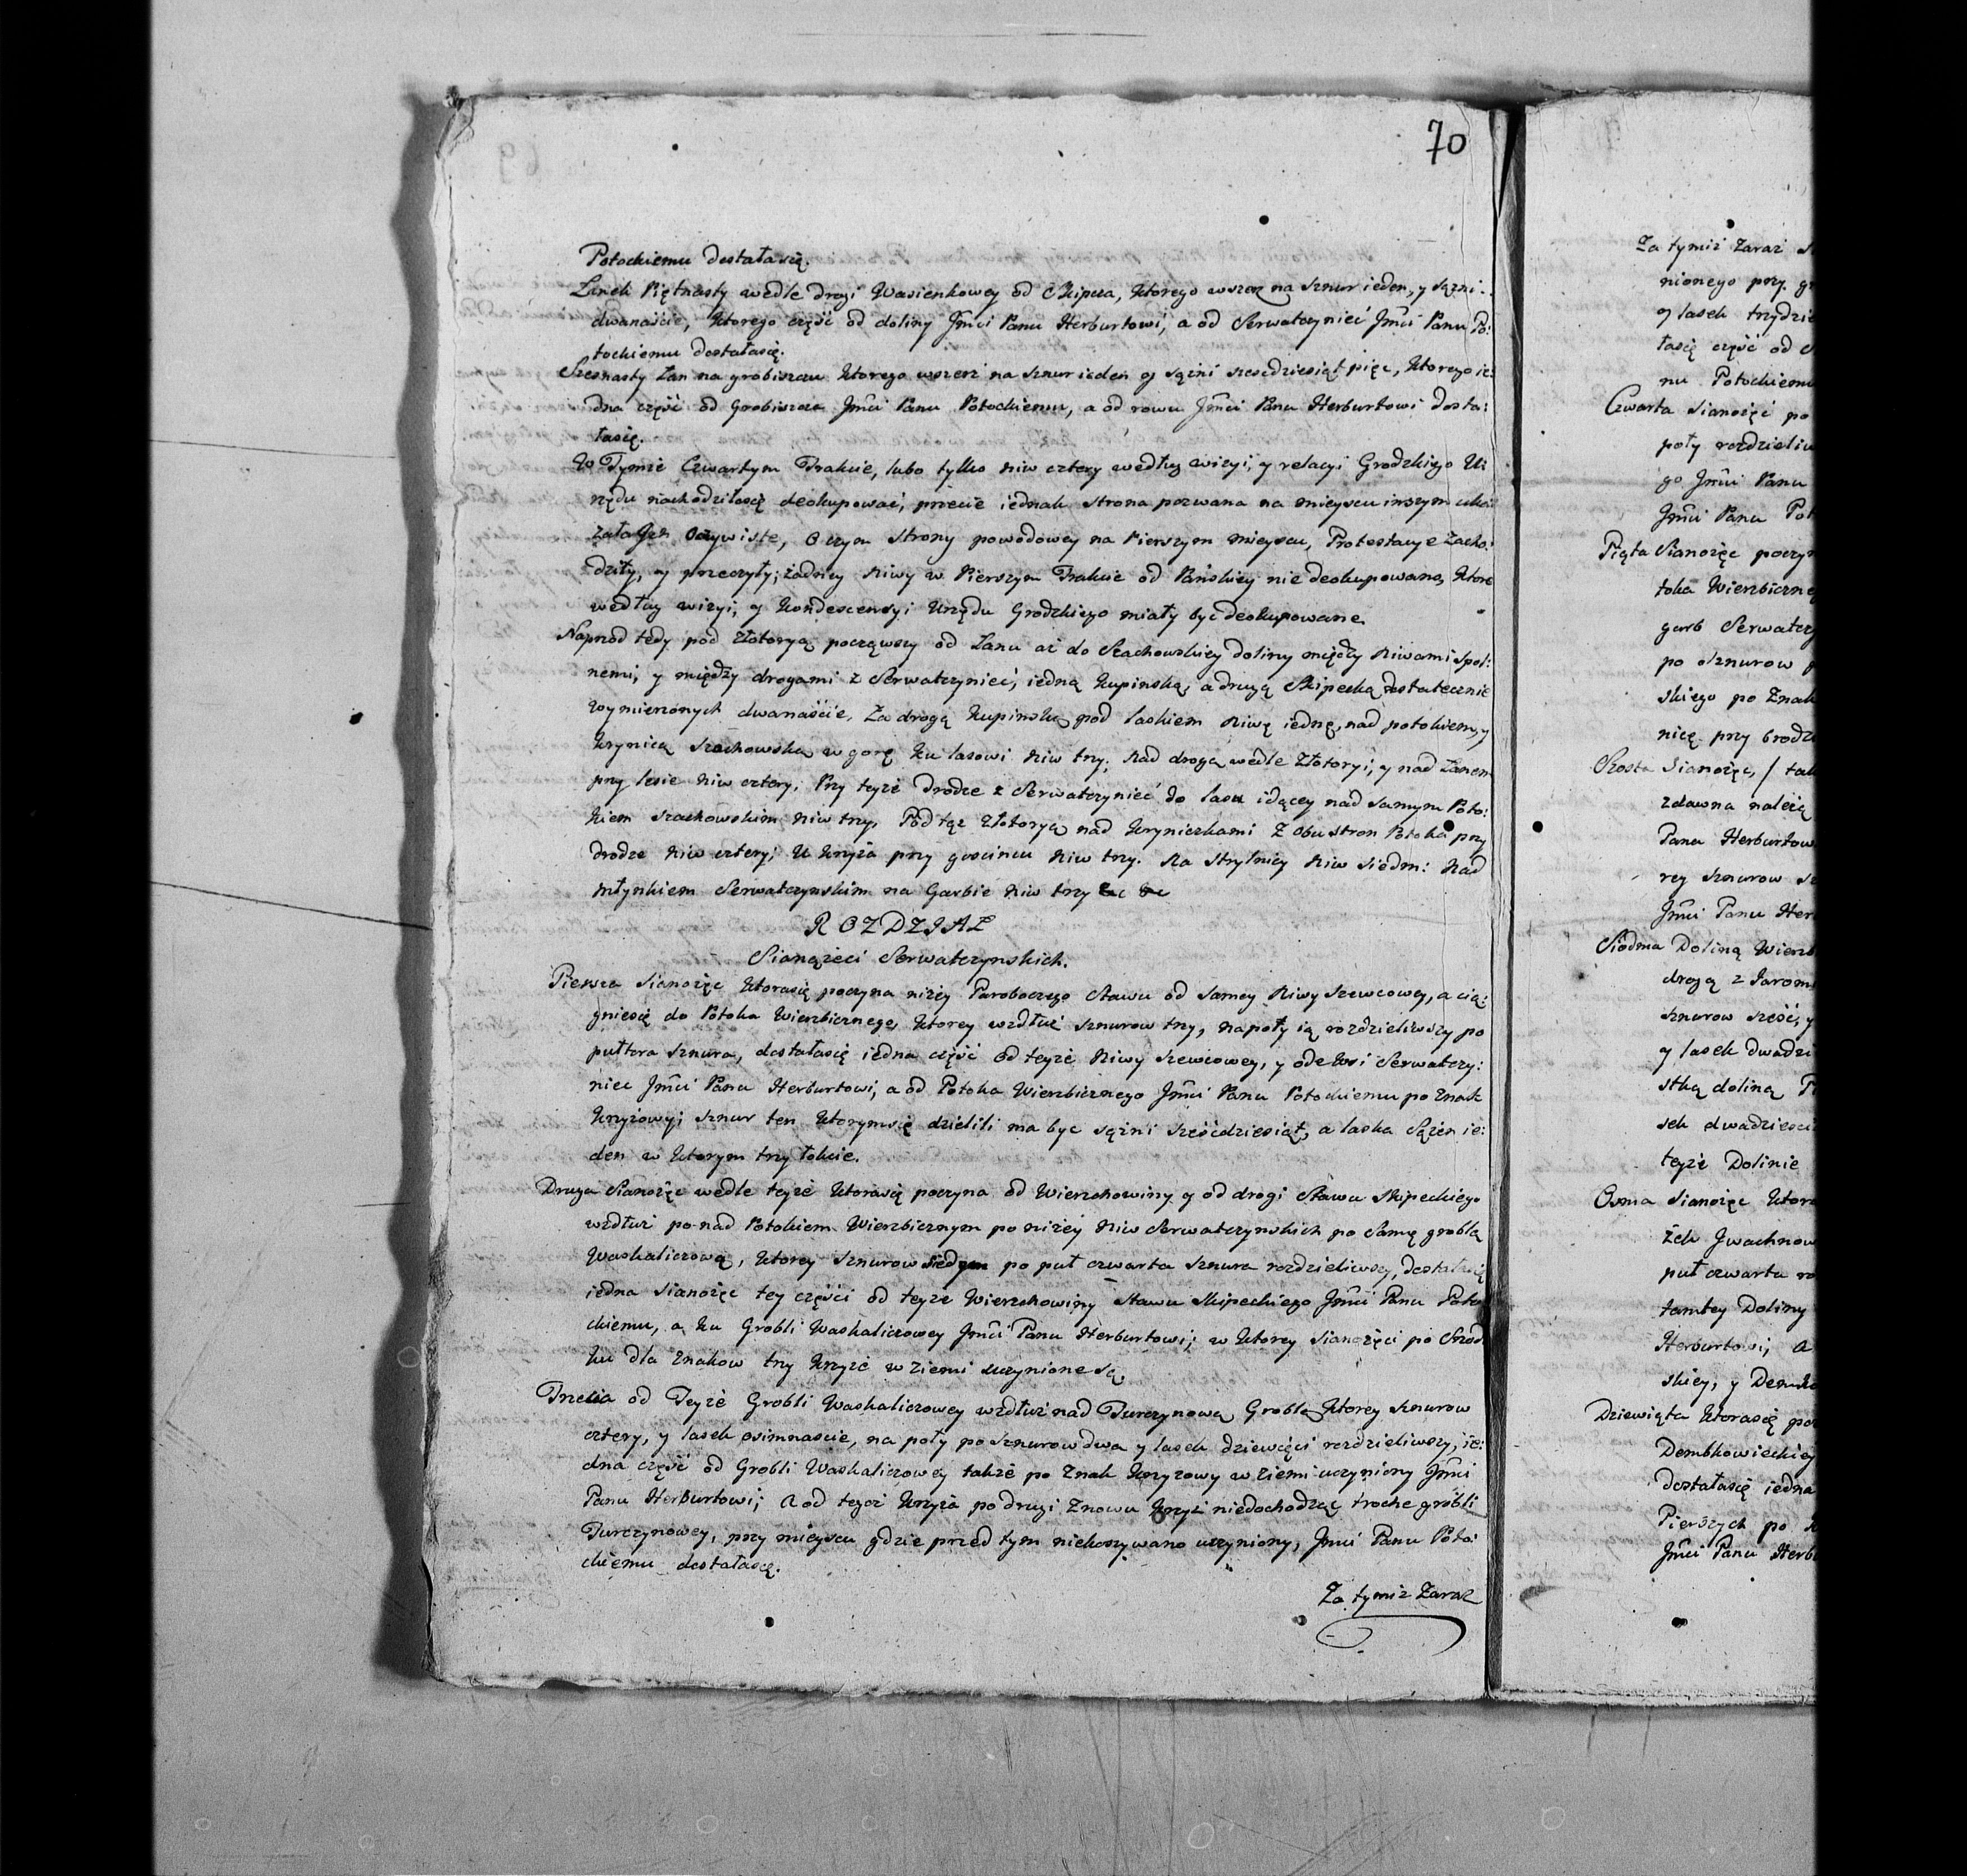 70
Potockiemu dostałasię.
Łanek Piętnasty wedle drogi Wasienkowey od Skipcza, ktorego wszerz na sznur ieden, y sązni
dwanaście, ktorego część od doliny Jmci Panu Herburtowi, a od Serwatzyniec Jmci Panu Po:
tockiemu dostałasię.
Szesnasty Łan na grobiszczu ktorego wszerz na sznur ieden y sązni szescdziesiąt pięc, ktorego ie:
dna część od Grobiszcza Jmci Panu Potockiemu, a od rowu Jmci Panu Herburtowi dosta:
łasię.
W Tymże Czwartym Trakcie, lubo tylko niw cztery według wizyi, y relacyi Grodzkiego U:
rzędu nachodziłosię deokupować, przecie iednak strona pozwana na mieyscu inszym uka:
załasżeh Oczywiste, o czym strony powodowey na Pierszym mieyscu, Protestacye zacho:
dziły, y przeczyły; żadney niwy w Pierszym Trakcie od Pańskiey nie deokupowano, ktore
według wizyi, y kondescensyi Urzędu Grodzkiego miały byc deokupowane.
Naprzod tedy pod Złotoryą począwszy od Łanu aż do Szachowskiey doliny między niwami spol:
nemi, y między drogami z Serwatzyniec, iedną Kupinską, a drugą Skipecką dostatecznie
wymierzonych dwanaście. Za drogą Kupinską pod laskiem niwę iednę, nad potokiem y
krynicą Szachowską w gorę ku lasowi niw trzy. Nad drogą wedle Złotoryi, y nad Łanem
przy lesie niw cztery. Przy teyże drodze z Serwatzyniec do lasu idącey nad samym Poto:
kiem Szachowskim niw trzy. Pod tąz Złotoryą nad kryniczkami z obu stron Potoka przy
drodze niw cztery; U krzyża przy goscincu niw trzy. Na Strylnicy niw siedm: Nad
młynkiem Serwatzynskim na Garbie niw trzy &c &c
ROZDZIAŁ
Sianożęci Serwatzynskich.
Piersza Sianożęc ktorasię poczyna niżey Paroboczego Stawu od samey niwy Szewcowey, a cią:
gniesię do Potoka Wierzbicznego, ktorey wzdłuż sznurow trzy, napoły ią rozdzieliwszy po
pułtora sznura, dostałasię iedna część od teyże niwy Szewcowey, y ode wsi Serwatzy:
niec Jmci Panu Herburtowi, a od Potoka Wierzbicznego Jmci Panu Potockiemu po znak
krzyżowy; sznur ten ktorymsię dzielili ma byc sązni sześćdziesiąt, a laska sążen ie:
den w ktorym trzy łokcie.
Druga Sianożęc wedle teyże ktorasię poczyna od Wierzchowiny y od drogi Stawu Skipeckiego
wzdłuż ponad Potokiem Wierzbicznym poniżey niw Serwatzynskich po samę groblą
Waskaliczową, ktorey sznurow siedym po puł czwarta sznura rozdzieliwszy, dostałasię
iedna sianożęc tey części od teyże Wierzchowiny Stawu Skipeckiego Jmci Panu Poto
ckiemu, a ku Grobli Waskaliczowey Jmci Panu Herburtowi; w ktorey sianożęci po srod
ku dla znakow trzy krzyże w ziemi uczynione są.
Trzecia od Teyże Grobli Waskaliczowey wzdłuż nad Turczynową Groblą, ktorey sznurow
cztery, y lasek osimnascie, na poły po sznurow dwa y lasek dziewięci rozdzieliwszy, ie:
dna część od Grobli Waskaliczowey także po znak krzyżowy w ziemi uczyniony Jmci
Panu Herburtowi; a od tegoż krzyża po drugi znowu krzyż niedochodząc troche grobli
Turczynowey, przy mieyscu gdzie przed tym niekoszywano uczyniony, Jmci Panu Poto:
ckiemu dostałasię.
Za tymiz zaraz
Za tymiż zaraz
nionego przy
y lasek
łasię część od
nu Potockiemu
Czwarta Sianożęć po
poły rozdzieliw
go Jmci Panu
Jmci Panu Pot
Piąta Sianożęc poczyn
toka Wierzbiczne
garb Serwatzy
po sznurow
skiego po znak
nicę przy brodz
Szosta Sianożęc, / tak
zdawna należą
Pana Herburtow
rey sznurow
Jmci Panu Her
Siodma Doliną Wierzb
drogą z Jarom
sznurow sześć, y
y lasek dwadzi
stką doliną
sek dwadziesci
teyże Dolinie
Osma Sianożęc ktora
żek Jwachnow
puł czwarta
tamtey Doliny
Herburtowi, a
skiey, y
Dziewiąta ktorasię po
Dembkowieckiey
dostałasię iedna
Pierszych po
Jmci Panu Herb